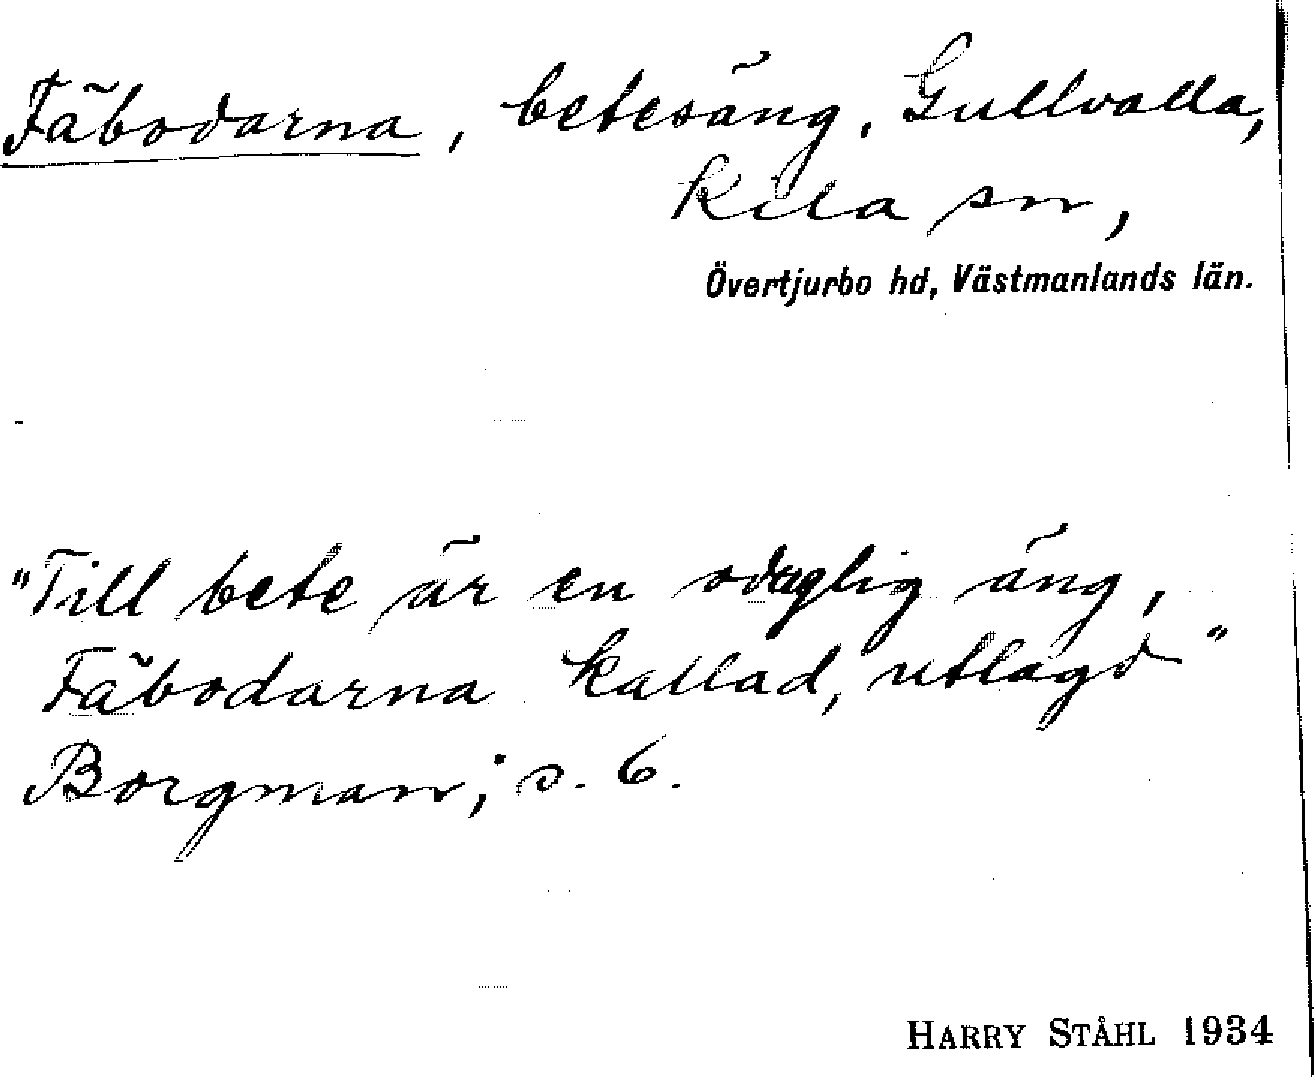 Fäbodarna, betesäng. Gullvalla,
Kila sn,
Övertjurbo hd, Västmanlands län.
"Till bete är en oduglig äng,
Fäbodarna kallad, utlagd"
Borgman, s. 6.
HARRY STÅHL 1934